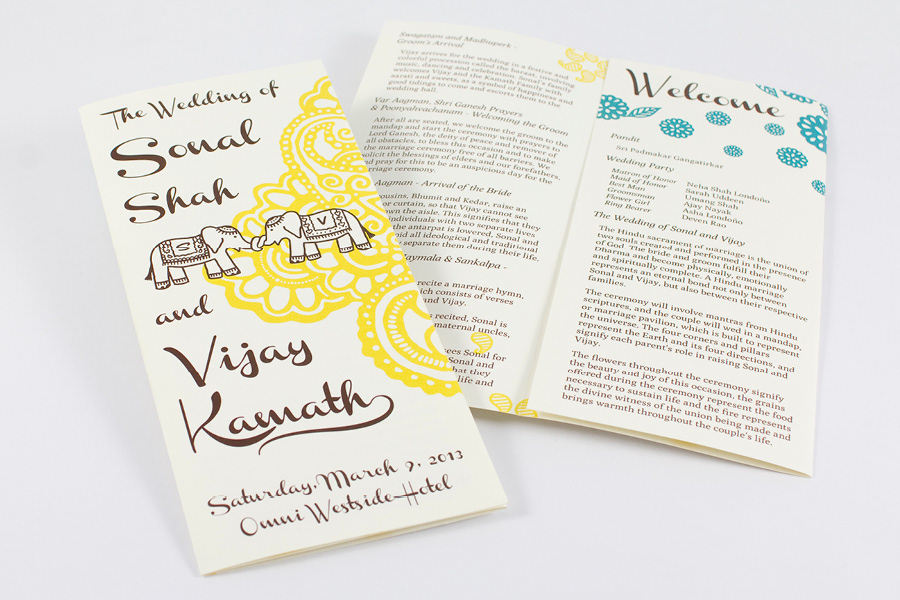 The Wedding of
Sonal
Shah
S
V
and
Vijay
Kamath
Saturday, March 9, 2013
Omni Westside Hotel
Swagatam and Madhuperk -
Groom's Arrival
Vijay arrives for the wedding in a festive and
colorful procession called the baraat, involving
music, dancing and celebration. Sonal's family
welcomes Vijay and the Kamath Family with
aarati and sweets, as a symbol of happiness and
good tidings to come and escorts them to the
wedding hall.
Var Aagman, Shri Ganesh Prayers
& Poonyahvachanam - Welcoming the Groom
After all are seated, we welcome the groom to the
mandap and start the ceremony with prayers to
Lord Ganesh, the deity of peace and remover of
all obstacles, to bless this occasion and to make
the marriage ceremony free of all barriers. We
solicit the blessings of elders and our forefathers,
and pray for this to be an auspicious day for the
marriage ceremony.
Aagman - Arrival of the Bride
cousins, Bhumit and Kedar, raise an
or curtain, so that Vijay cannot see
down the aisle. This signifies that they
individuals with two separate lives
the antarpat is lowered, Sonal and
amid all ideological and traditional
separate them during their life.
aymala & Sankalpa -
recite a marriage hymn,
which consists of verses
and Vijay.
is recited, Sonal is
maternal uncles,
sees Sonal for
that they
life and
Welcome
Pandit
Sri Padmakar Gangatirkar
Wedding Party
Matron of Honor Neha Shah Londoño
Maid of Honor Sarah Uddeen
Best Man Umang Shah
Groomsman Ajay Nayak
Flower Girl Asha Londoño
Ring Bearer Deven Rao
The Wedding of Sonal and Vijay
The Hindu sacrament of marriage is the union of
two souls created and performed in the presence
of God. The bride and groom fulfill their
Dharma and become physically, emotionally
and spiritually complete. A Hindu marriage
represents an eternal bond not only between
Sonal and Vijay, but also between their respective
families.
The ceremony will involve mantras from Hindu
scriptures, and the couple will wed in a mandap,
or marriage pavilion, which is built to represent
the universe. The four corners and pillars
represent the Earth and its four directions, and
signify each parent's role in raising Sonal and
Vijay.
The flowers throughout the ceremony signify
the beauty and joy of this occasion, the grains
offered during the ceremony represent the food
necessary to sustain life and the fire represents
the divine witness of the union being made and
brings warmth throughout the couple's life.